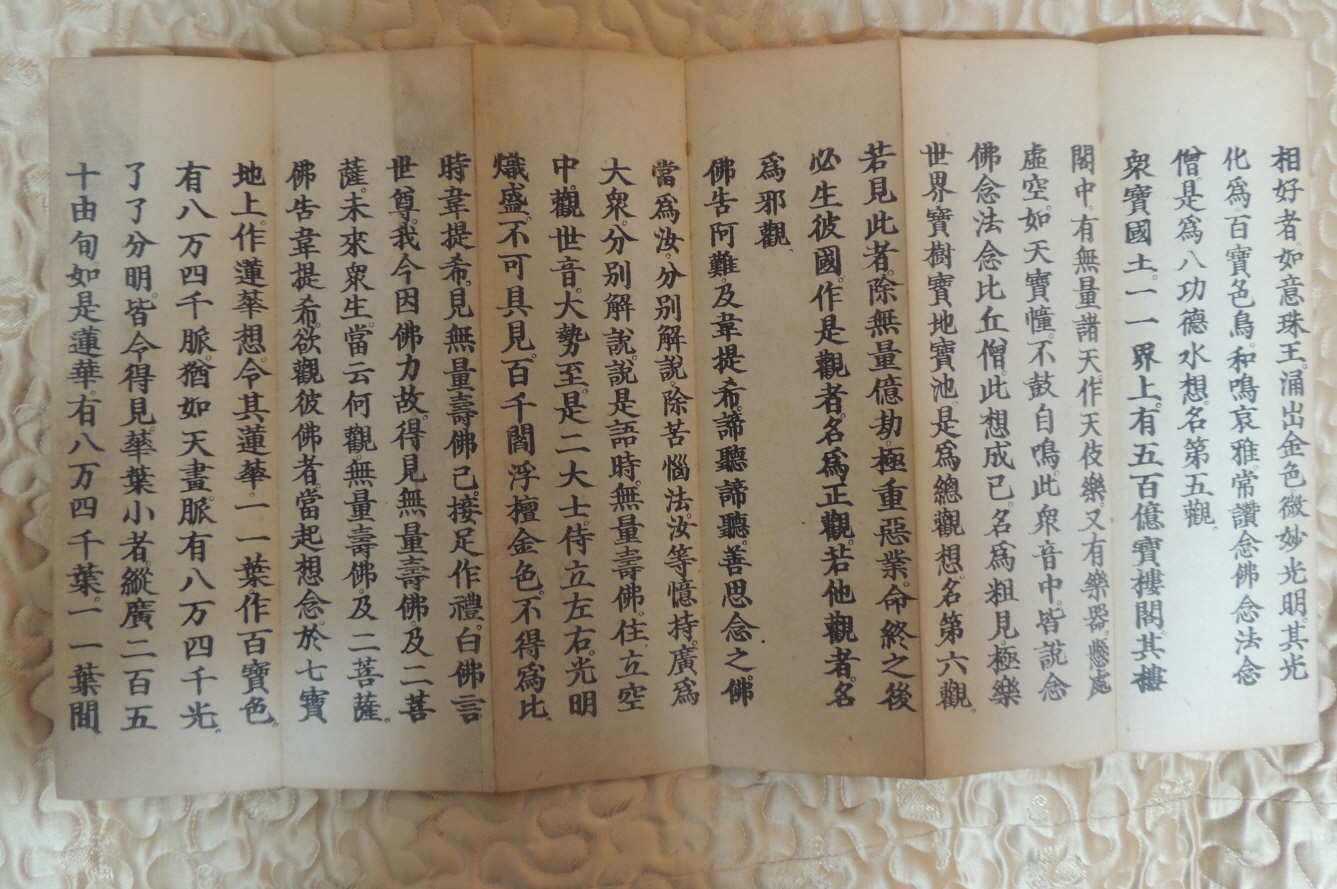 相好者。如意珠王。涌出金色微妙光明。其光
化爲百寶色鳥。和鳴哀雅。常讃念佛念法念
僧是爲八功德水想。名第五觀。
衆寶國土。一一界上。有五百億寶樓閣。其樓
閣中。有無量諸天作天伎樂又有樂器。懸處
虛空。如天寶幢。不鼓自鳴。此衆音中。皆說念
佛念法念比丘僧。此想成已。名爲粗見極樂
世界寶樹寶地寶池。是爲總觀想。名第六觀。
若見此者。除無量億劫。極重惡業。命終之後
必生彼國。作是觀者。名爲正觀。若他觀者。名
爲邪觀。
佛告阿難。及韋提希。諦聽諦聽。善思念之。佛
當爲汝。分別解說。除苦惱法。汝等憶持。廣爲
大衆。分別解說。說是語時。無量壽佛。住立空
中。觀世音。大勢至。是二大士。侍立左右。光明
熾盛。不可具見。百千閻浮檀金色。不得爲比。
時韋提希。見無量壽佛已。接足作禮。白佛言
世尊。我今因佛力故。得見無量壽佛。及二菩
薩。未來衆生。當云何觀。無量壽佛。及二菩薩。
佛告韋提希。欲觀彼佛者。當起想念。於七寶
地上。作蓮華想。令其蓮華。一一葉。作百寶色。
有八万四千脈。猶如天畫。脈有八万四千光。
了了分明。皆令得見。華葉小者。縱廣二百五
十由旬。如是蓮華。有八万四千葉。一一葉間